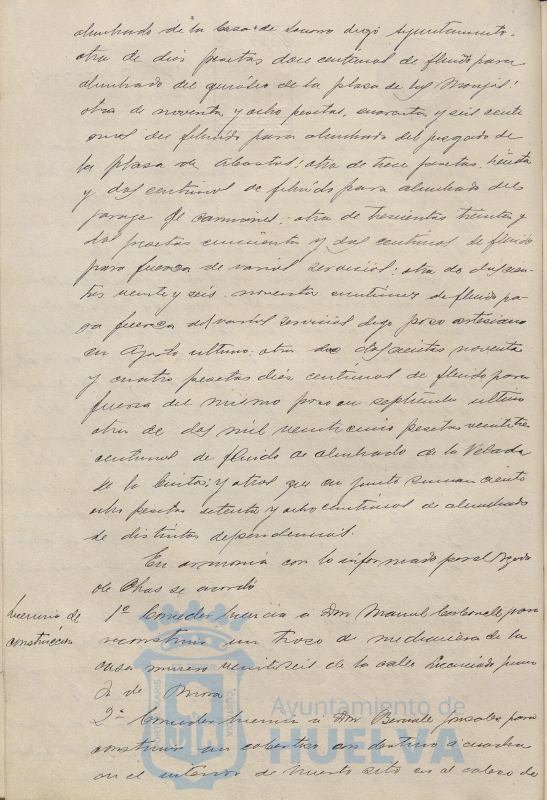 alumbrado de la Casa de Socorro digo Ayuntamiento.
otra de diez pesetas doce centimos de fluido para
alumbrado del quiosco de la plaza de las Monjas:
otra de noventa y ocho pesetas, cuarenta y seis centi
mos de fluido para alumbrado del juzgado de
la plaza de Abastos: otra de trece pesetas, treinta
y dos centimos de fluido para alumbrado del
garaje de camiones: otra de trescientas treinta y
dos pesetas cincuenta y dos centimos de fluido
para fuerza de varios servicios: otra de doscien
tas veinte y seis noventa centimos de fluido pa
ra fuerza de varios servicios digo pozo artesiano
en Agosto ultimo: otra de doscientas noventa
y cuatro pesetas diez centimos de fluido para
fuerza del mismo pozo en septiembre ultimo
otra de dos mil veinticinco pesetas veintitres
centimos de fluido de alumbrado de la Velada
de la Cinta: y otras que en junto suman ciento
ocho pesetas setenta y ocho centimos de alumbrado
de distintas dependencias.
En armonia con lo informado por el Negdo
de Obras se acordó
Licencias de
construcción
1º Conceder licencia a Don Manuel para
reconstruir un trozo de medianera de la
casa numero veintiseis de la calle Licenciado Juan
de Mora
2º Conceder licencia a Don González para
construir un cobertizo con destino a cuadra
en el interior de huerto sito en el cabezo de
Ayuntamiento de
HUELVA